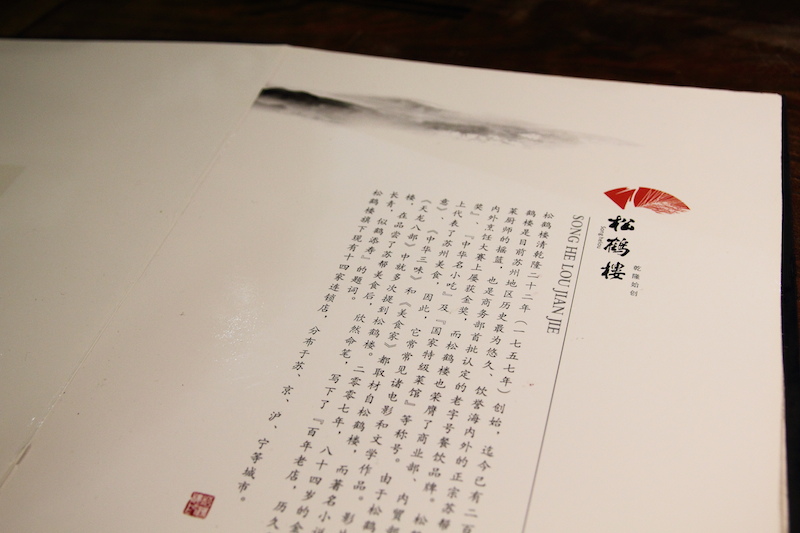 松鶴樓
Song Helou
乾隆始创
SONG HE LOU JIAN JIE
松鹤楼清乾隆二十二年（一七五七年）创始，迄今已有二百
鹤楼是目前苏州地区历史最为悠久、饮誉海内外的正宗苏帮
菜厨师的摇篮，也是商务部首批认定的老字号餐饮品牌。松
内外烹饪大赛上屡获金奖，而松鹤楼也荣膺了商业部、内贸部
奖』、『中华名小吃』及『国家特级菜馆』等称号。由于松鹤
上代表了苏州美食，因此，它常常见诸电影和文学作品。影片
意》、《中华三味》和《美食家》都取材自松鹤楼，而著名小说
《天龙八部》中就多次提到松鹤楼。二零零七年，八十四岁的金
楼，在品尝了苏帮美食后，欣然命笔，写下了『百年老店，历久
长青，似鹤添寿』的题词。
松鹤楼旗下现有十四家连锁店，分布于苏、京、沪、宁等城市。